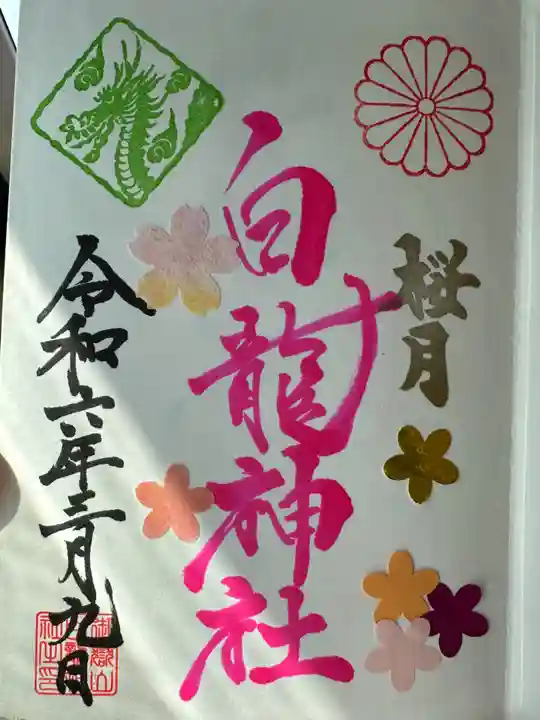 桜月
白龍神社
令和六年三月九日